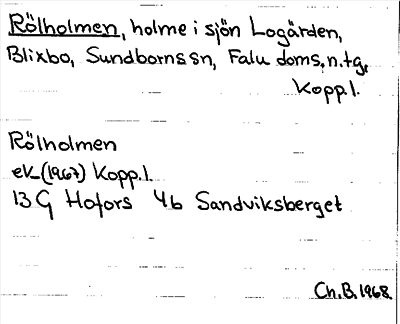 Rölholmen, holme i sjön Logärden,
Blixbo, Sundborns sn, Falu doms. n. tg,
Kopp. l.
Rölholmen
eK (1967) Kopp. l.
13 G Hofors 4b Sandviksberget
Ch. B. 1968.